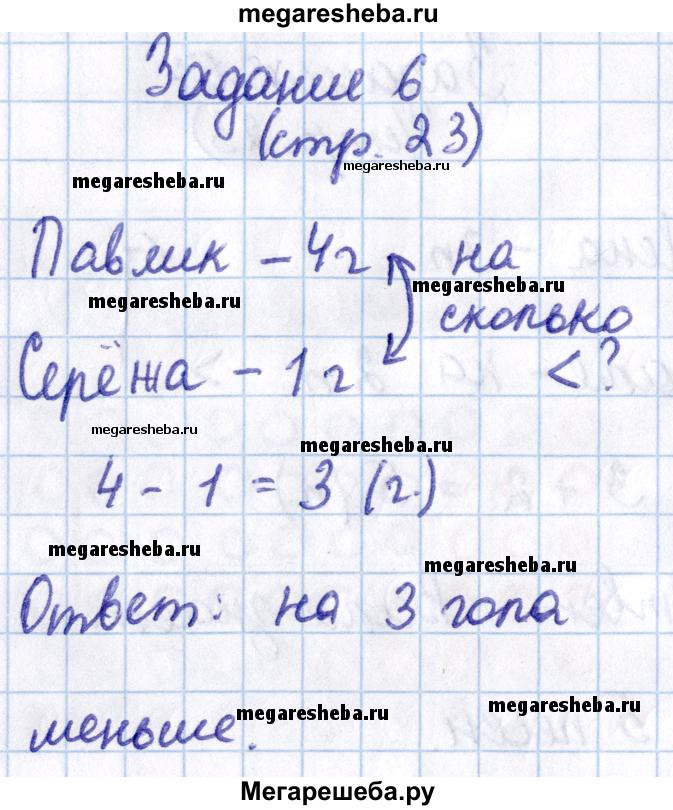 megaresheba.ru
Задание 6
(стр. 23)
megaresheba.ru
megaresheba.ru
Павлик – 4 г на
megaresheba.ru
megaresheba.ru
сколько
Серёжа – 1 г < ?
megaresheba.ru
megaresheba.ru
4 - 1 = 3 (г.)
megaresheba.ru
megaresheba.ru
Ответ: на 3 гопа
megaresheba.ru
megaresheba.ru
меньше.
Мегарешеба.ру